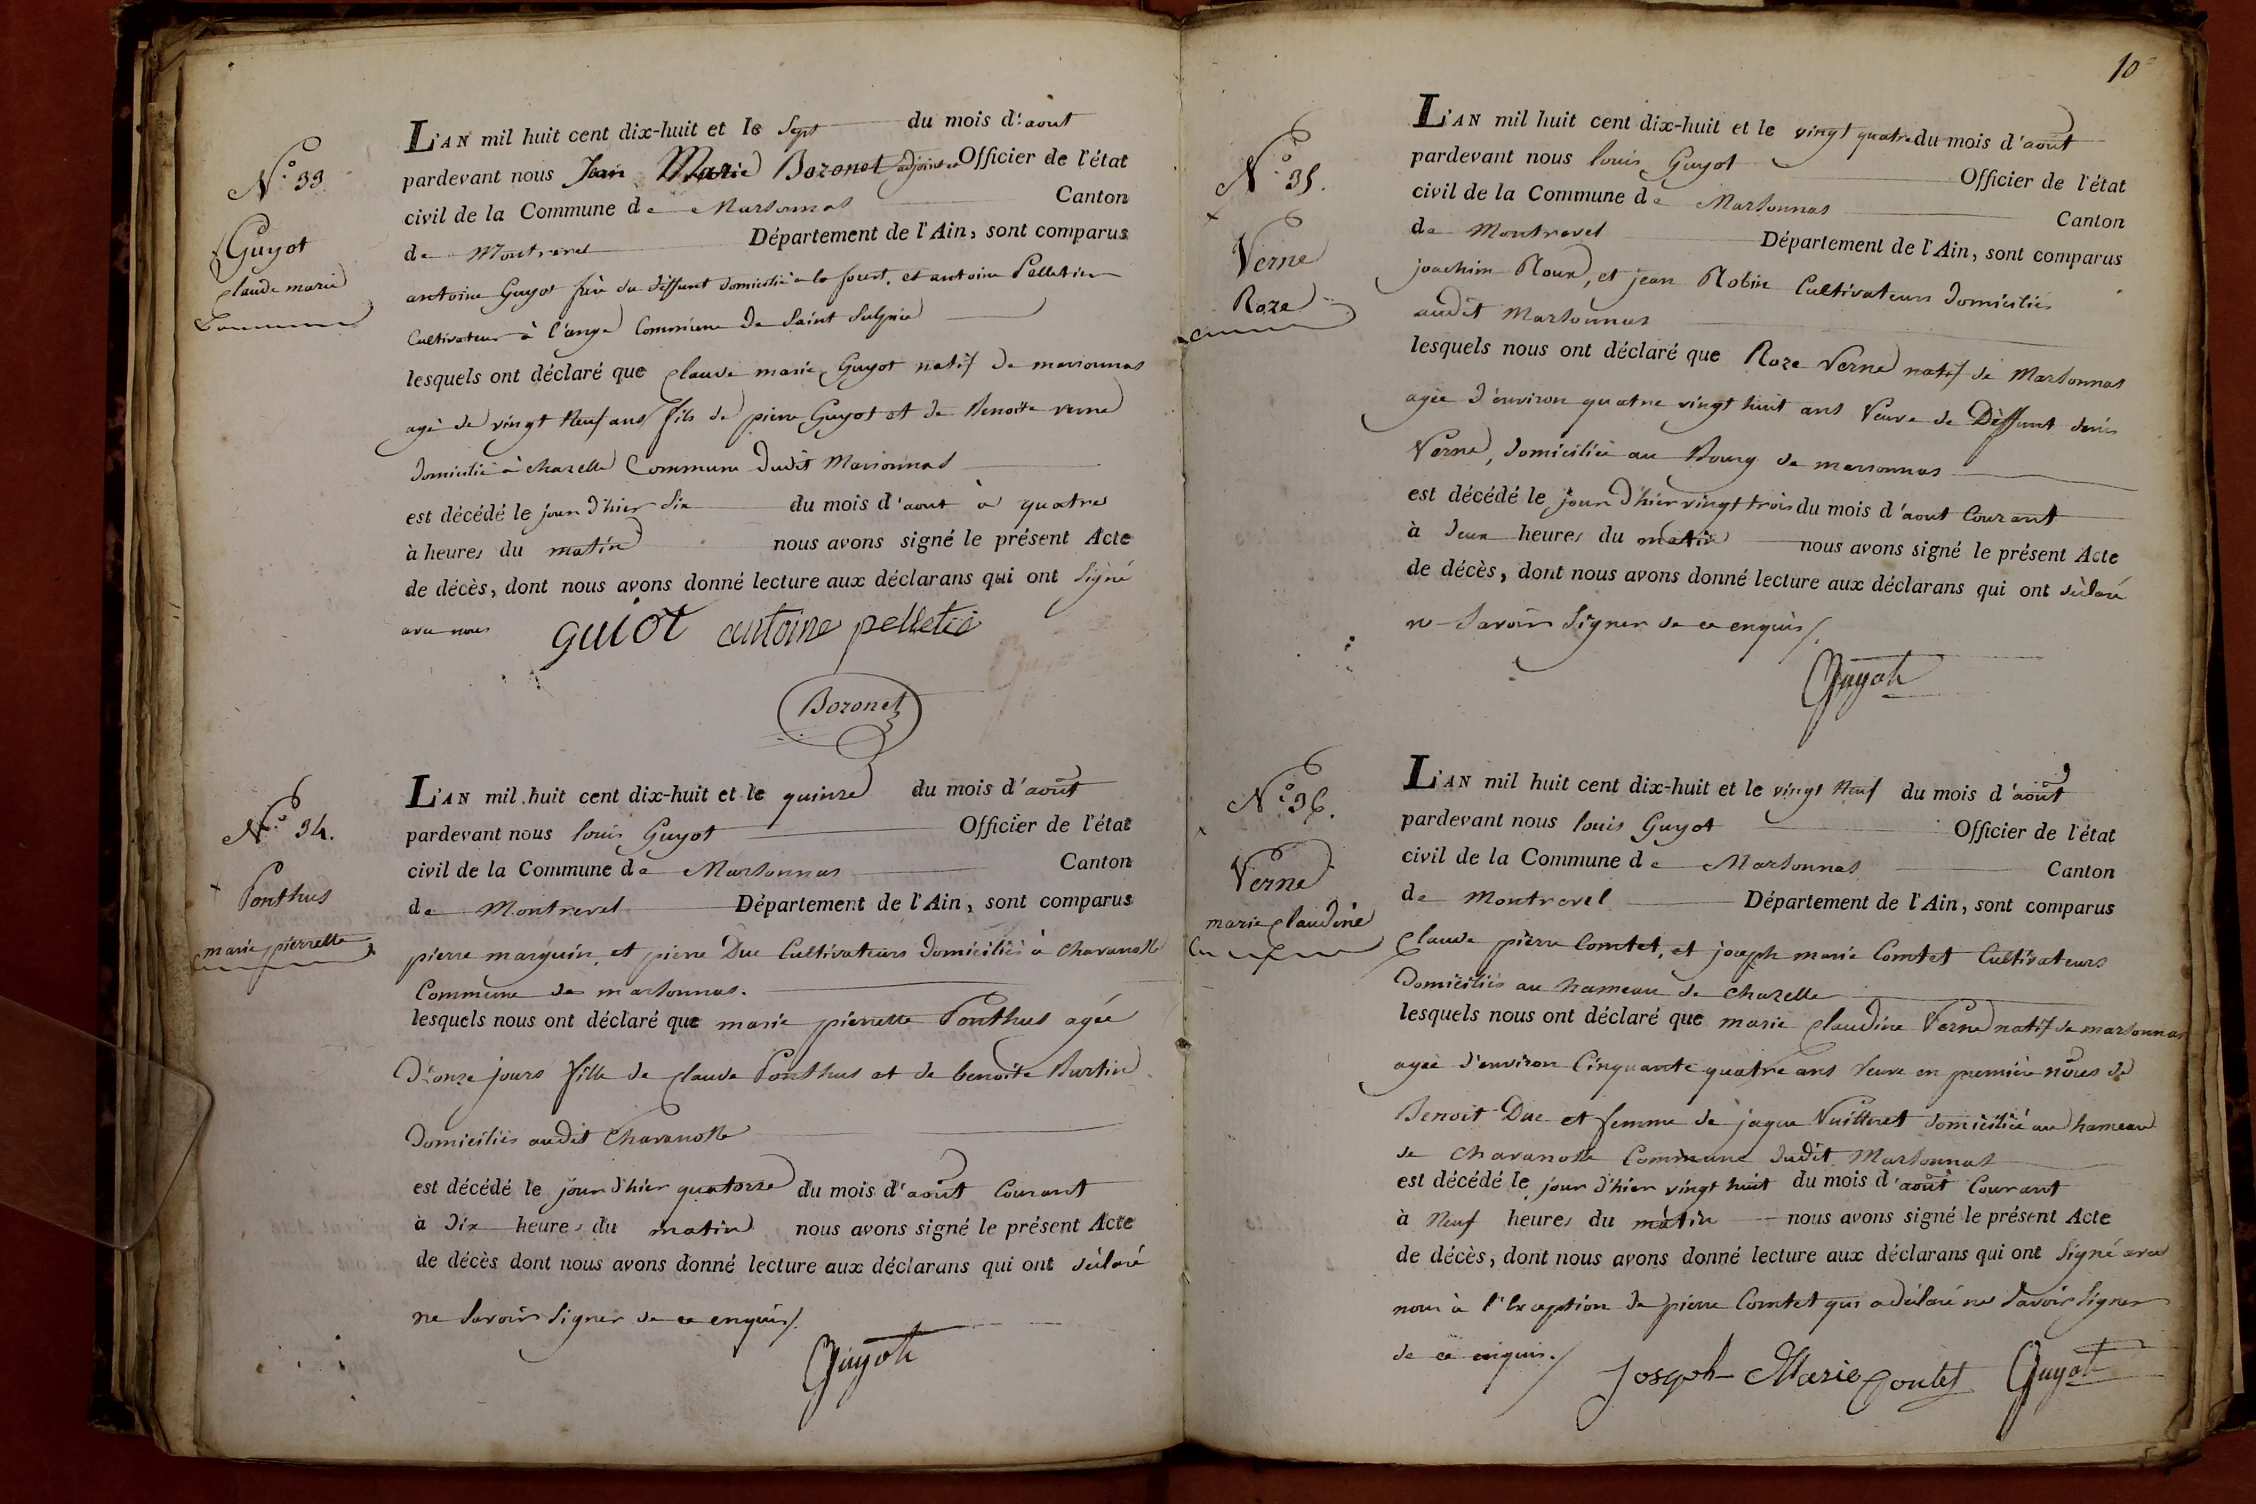 N.° 33.
Guyot
claude marie
L'AN mil huit cent dix-huit et le sept du mois d'aout
pardevant nous Jean Marie Bozonet adjoint Officier de l'état
civil de la Commune de Marsonnas Canton
de Montrevel Département de l'Ain, sont comparus
antoine Guyot frère du déffunt domicilié à la forest, et antoine Pelletier
Cultivateur à l'ange Commune de Saint Sulpice
lesquels ont déclaré que claude marie Guyot natif de marsonnas
agé de vingt neuf ans fils de pierre Guyot et de Benoite verne
domicilié à chazelle Commune dudit Marsonnas
est décédé le jour d'hier six du mois d'aout à quatre
à heures du matin nous avons signé le présent Acte
de décès, dont nous avons donné lecture aux déclarans qui ont signé
avec nous guiot antoine pelletié
Bozonet
N.° 34.
Ponthus
marie pierrette
L'AN mil huit cent dix-huit et le quinze du mois d'août
pardevant nous louis Guyot Officier de l'état
civil de la Commune de Marsonnas Canton
de Montrevel Département de l'Ain, sont comparus
pierre marguin, et pierre Duc Cultivateurs domiciliés à chavanosse
Commune de marsonnas.
lesquels nous ont déclaré que marie pierrette Ponthus agée
d'onze jours fille de claude Ponthus et de benoite Burtin
domiciliés audit Chavanosse
est décédé le jour d'hier quatorze du mois d'août Courant
à dix heures du matin nous avons signé le présent Acte
de décès dont nous avons donné lecture aux déclarans qui ont déclaré
ne savoir signer de ce enquis/.
Guyot
10
N.° 35.
Verne
Roze
L'AN mil huit cent dix-huit et le vingt quatre du mois d'août
pardevant nous louis Guyot Officier de l'état
civil de la Commune de Marsonnas Canton
de Montrevel Département de l'Ain, sont comparus
joachim Roux, et jean Robin Cultivateurs domiciliés
audit Marsonnas
lesquels nous ont déclaré que Roze Verne natif de Marsonnas
agée d'environ quatre vingt huit ans Veuve de Déffunt denis
Verne, domiciliée au Bourg de marsonnas
est décédé le jour d'hier vingt trois du mois d'aout Courant
à deux heures du matin nous avons signé le présent Acte
de décès, dont nous avons donné lecture aux déclarans qui ont déclaré
ne Savoir Signer de ce enquis/.
Guyot
N.° 36.
Verne
marie claudine
L'AN mil huit cent dix-huit et le vingt neuf du mois d'août
pardevant nous louis Guyot Officier de l'état
civil de la Commune de Marsonnas Canton
de Montrevel Département de l'Ain, sont comparus
claude pierre Comtet, et joseph marie Comtet Cultivateurs
Domiciliés au hameau de chazelle
lesquels nous ont déclaré que marie claudine Verne natif de marsonnas
agée d'environ Cinquante quatre ans Veuve en première nôces de
Benoit Duc et femme de jaque Vuitteret domiciliée au hameau
de chavanosse Commune dudit Marsonnas
est décédé le jour d'hier vingt huit du mois d'août Courant
à Neuf heures du matin nous avons signé le présent Acte
de décès, dont nous avons donné lecture aux déclarans qui ont Signé avec
nous à l'Exception de pierre Comtet qui a déclaré ne Savoir Signer
de ce enquis./
Joseph Marie Contet Guyot